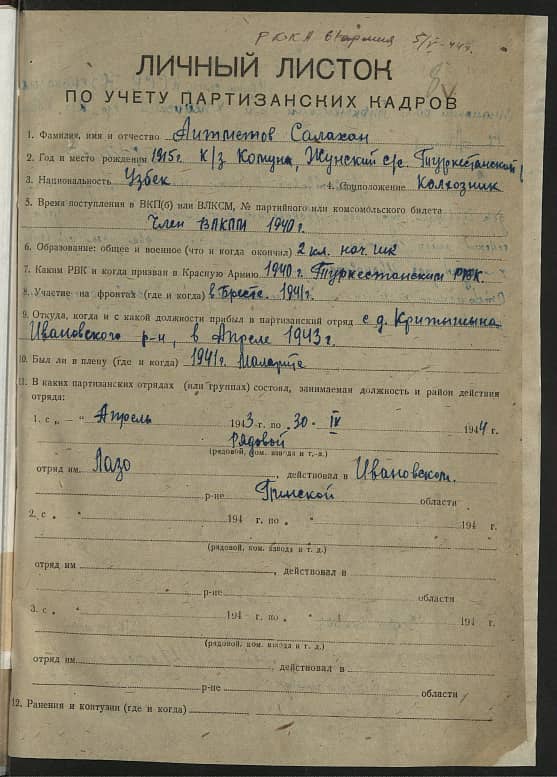 РККА в Кармия 5/V-44г.
ЛИЧНЫЙ ЛИСТОК
ПО УЧЕТУ ПАРТИЗАНСКИХ КАДРОВ
1. Фамилия, имя и отчество Аитметов Салахан
2. Год и место рождения 1915г. к/з Комуна, Жунский с/с. Туркестанской
3. Национальность Узбек 4. Соцположение Колхозник
5. Время поступления в ВКП(б) или ВЛКСМ, № партийного или комсомольского билета
Член 1940г.
6. Образование: общее и военное (что и когда окончил) 2 кл. нач. шк
7. Каким РВК и когда призван в Красную Армию 1940г. Туркестанским РВК.
8. Участие на фронтах (где и когда) в Бресте. 1941г.
9. Откуда, когда и с какой должности прибыл в партизанский отряд с д.
Ивановского р-н, в Апреле 1943г.
10. Был ли в плену (где и когда) 1941г. Малорите
11. В каких партизанских отрядах (или группах) состоял, занимаемая должность и район действия
отряда:
1. с „ — “ Апрель 1943 г. по „30“ IV 1944 г.
Рядовой
(рядовой, ком. взвода и т. д.)
отряд им. Лазо, действовал в Ивановском.
р-не Пинской области
2. с „ “ 194 г. по „ “ 194 г.
(рядовой, ком. взвода и т. д.)
отряд им , действовал в
р-не области
3. с „ “ 194 г. по „ “ 194 г.
(рядовой, ком. взвода и т. д.)
отряд им. , действовал в
р-не области
12. Ранения и контузии (где и когда)